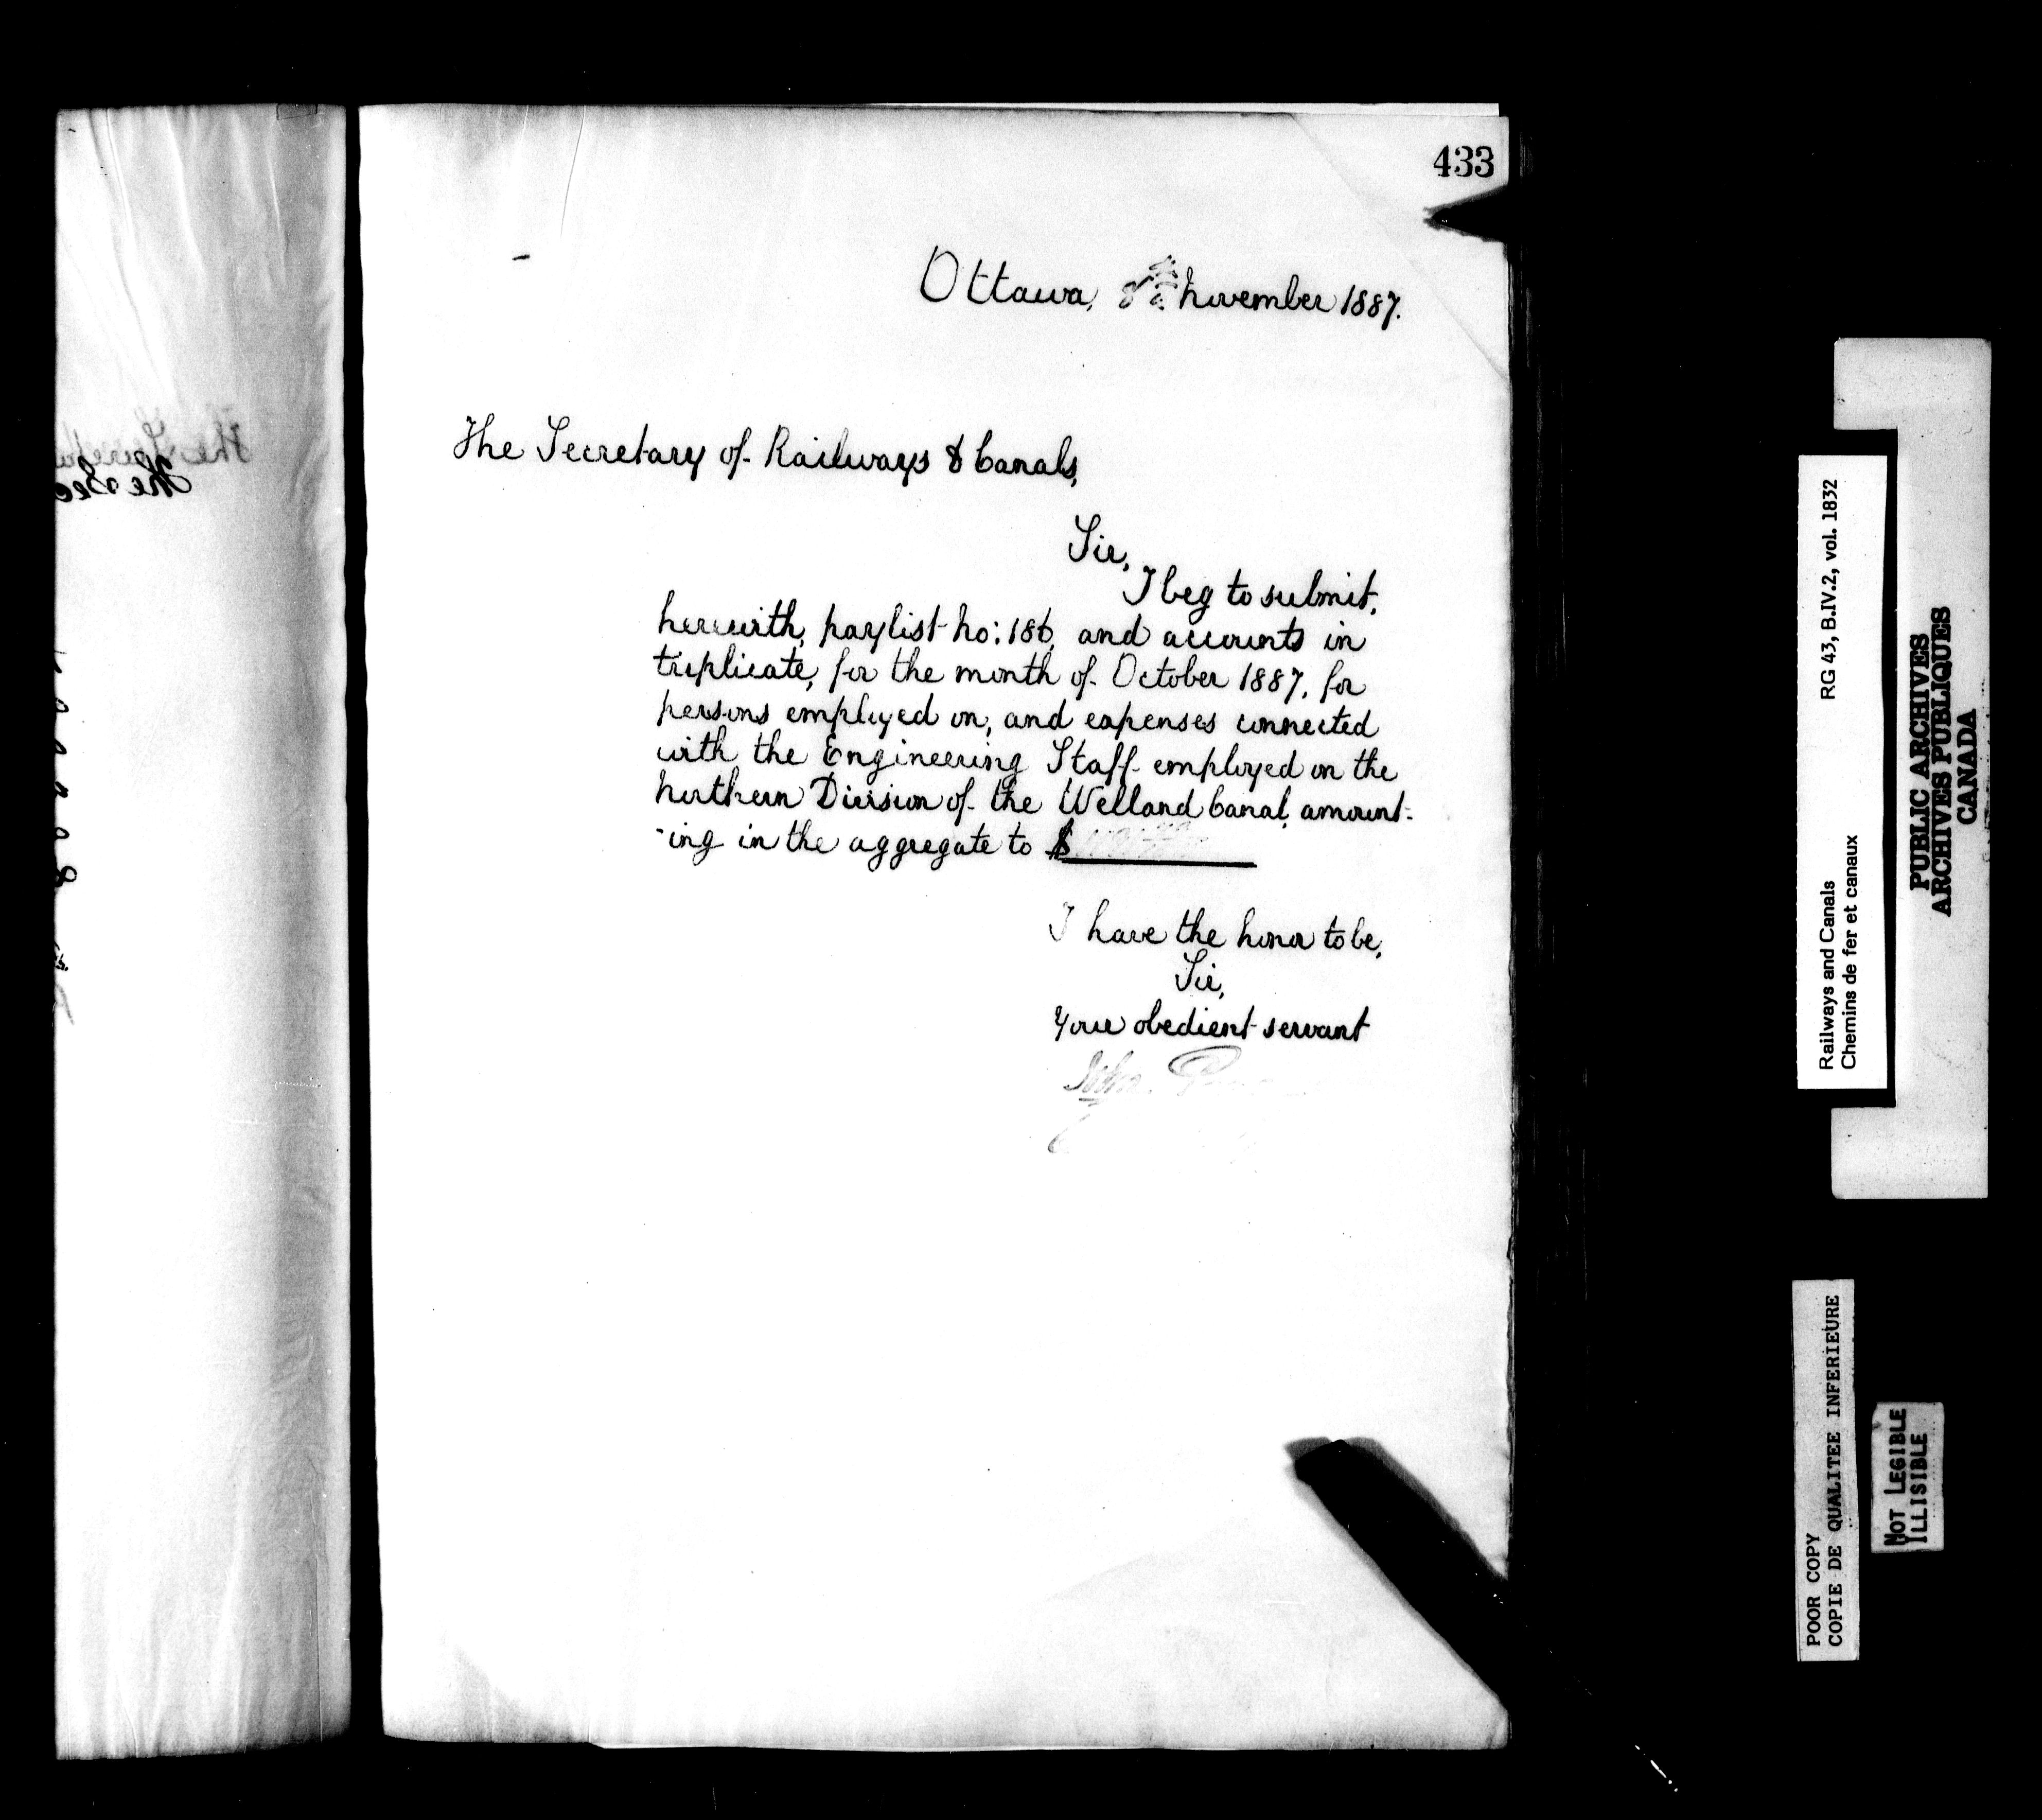 433
Ottawa, 8th November 1887.
The Secretary of Railways & Canals,
Sir,
I beg to submit,
herewith, paylist No: 186, and accounts in
triplicate, for the month of October 1887, for
persons employed on, and expenses connected
with the Engineering Staff employed on the
Northern Division of the Welland Canal, amount-
-ing in the aggregate to $
I have the honor to be,
Sir,
Your obedient servant
John
RG 43, B.IV.2, vol. 1832
Railways and Canals
Chemins de fer et canaux
PUBLIC ARCHIVES
ARCHIVES PUBLIQUES
CANADA
POOR COPY
COPIE DE QUALITEE INFERIEURE
NOT LEGIBLE
ILLISIBLE